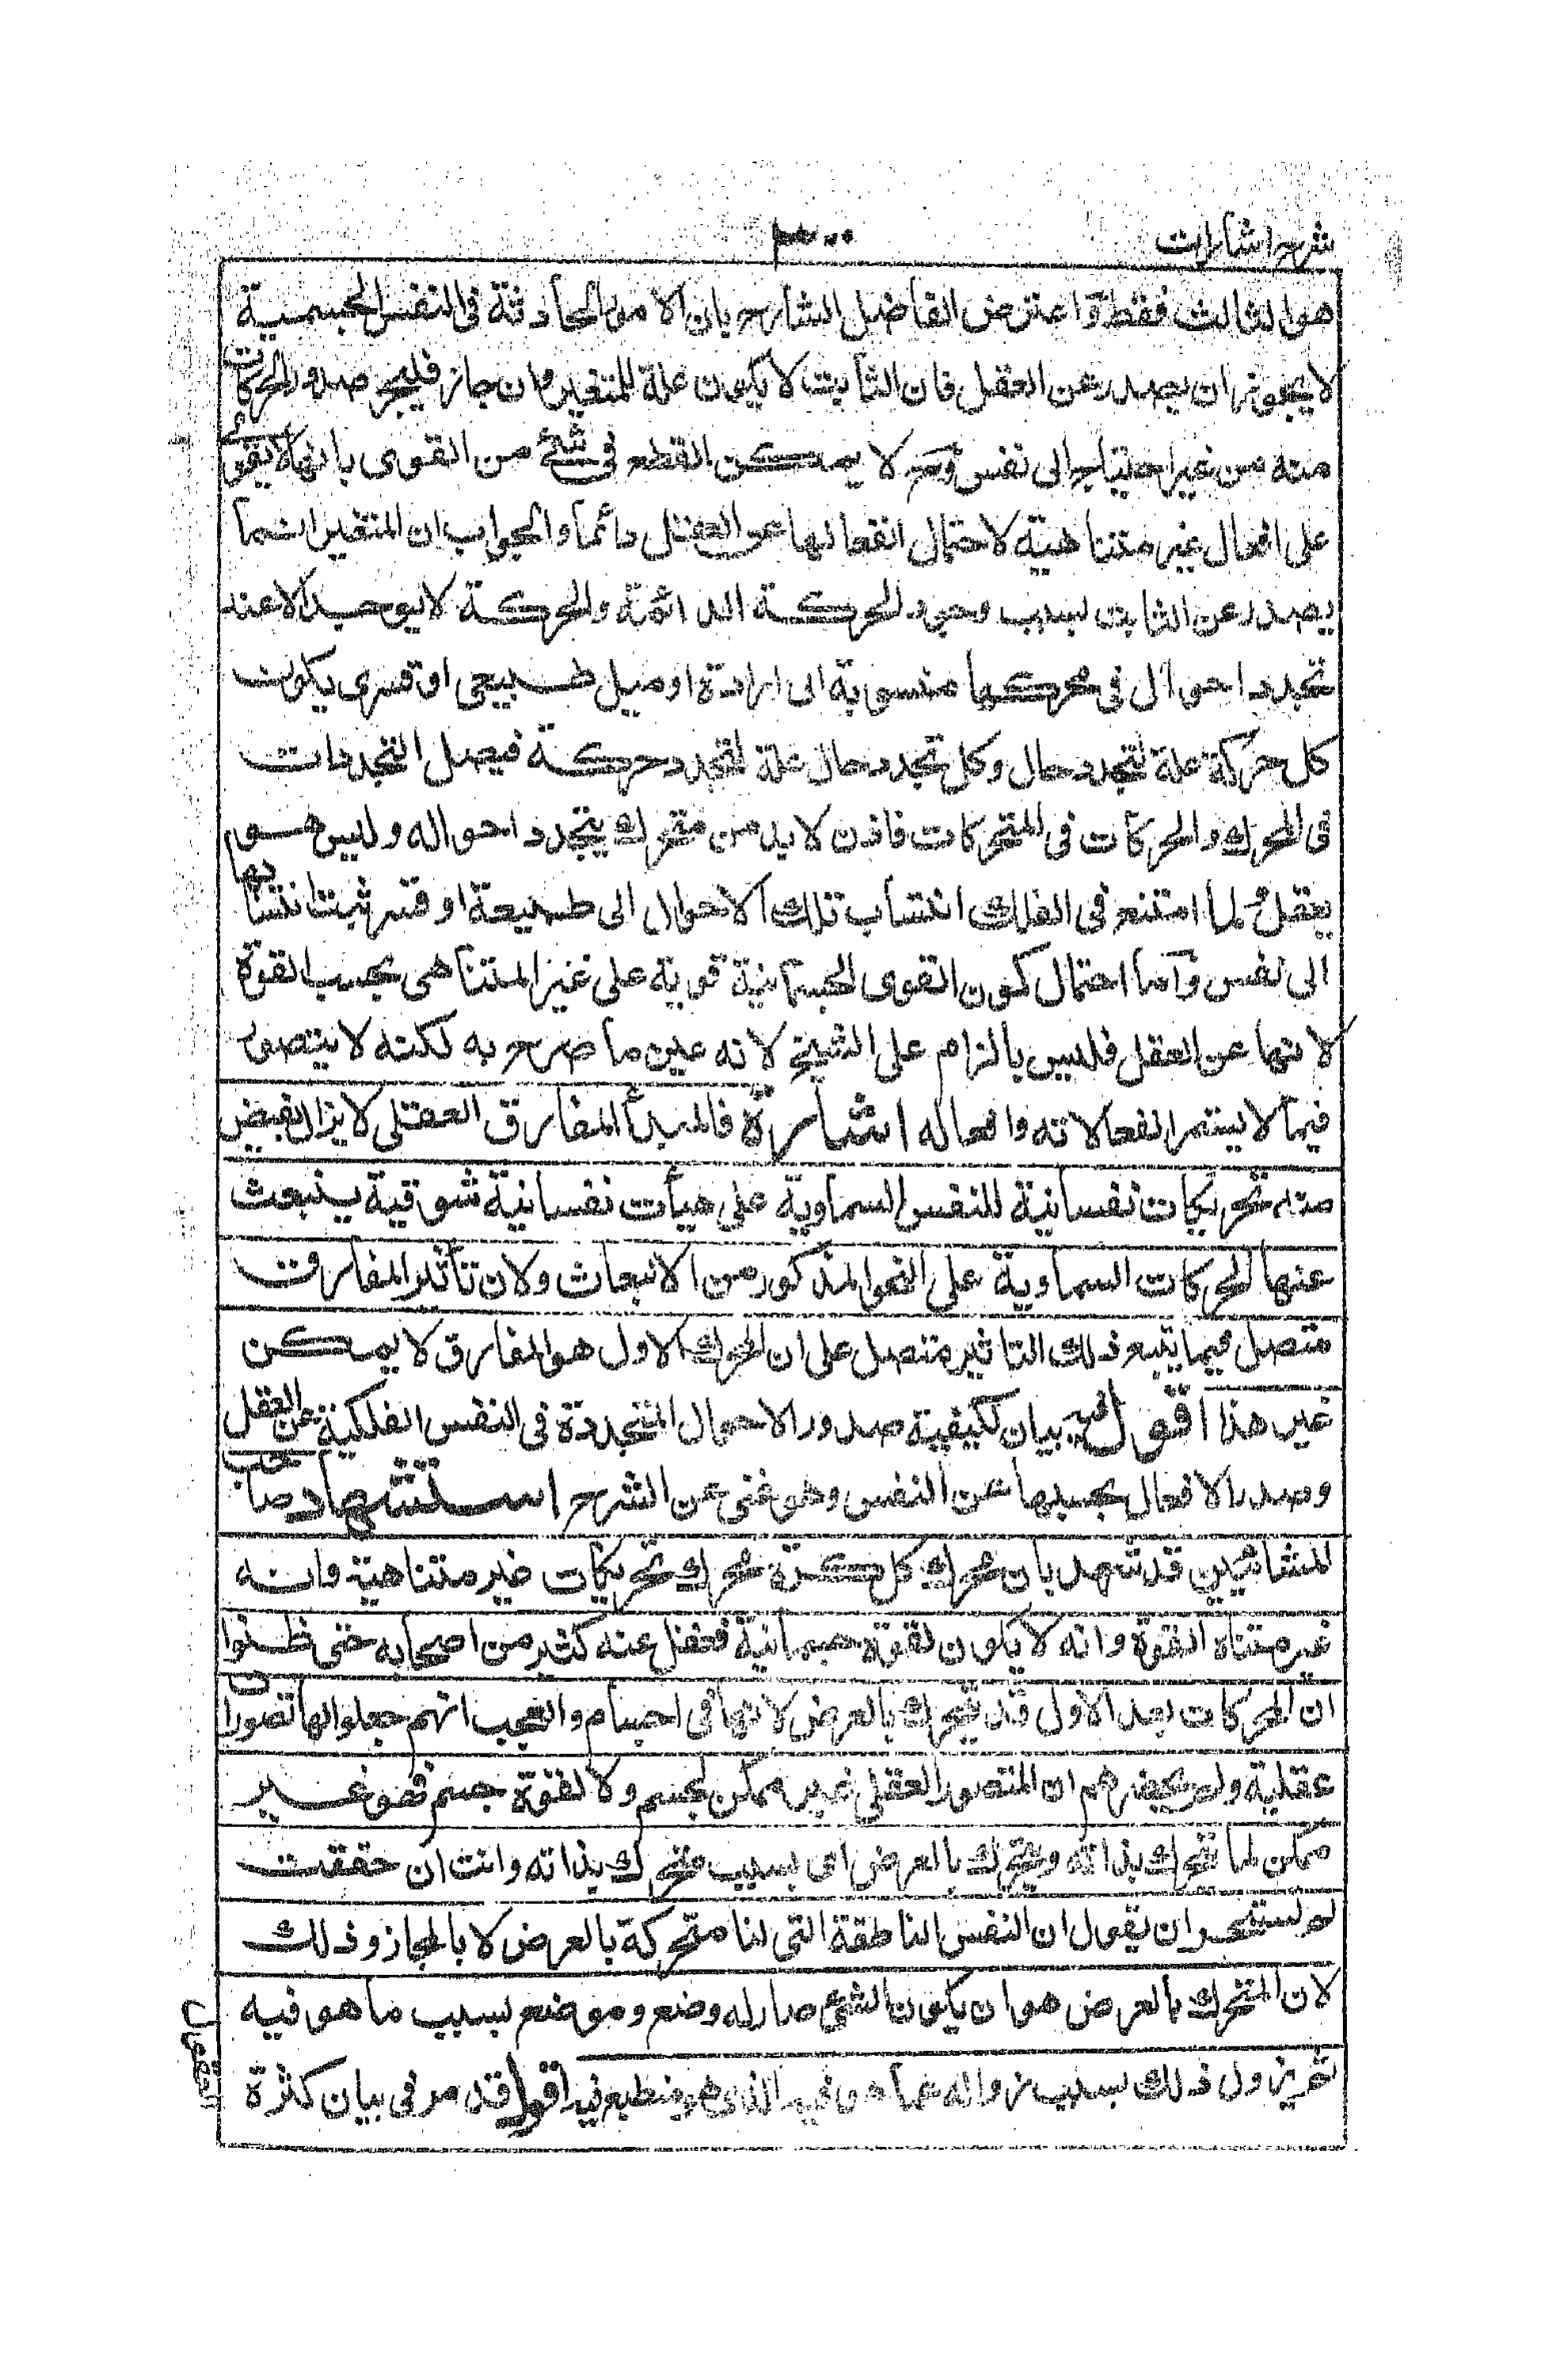 شرح اشارات
٣٠٠
هو الثالث فقط واعترض الفاضل الشارح بان الامور الحادثة فى النفس الجسمية
لا يجوز ان يصدر عن العقل فان الثابت لا يكون علة للمتغير وان جاز فليجز صدور الحركات
منه من غير احتياج الى نفس وح لا يمكن القطع فى شئ من القوى بانها لا تقوى
على افعال غير متناهية لاحتمال انفعالها عن العقل دائما والجواب ان المتغير انما
يصدر عن الثابت بسبب وجود الحركة الدائمة والحركة لا يوجد الا عند
تجدد احوال فى محركها منسوبة الى ارادة او ميل طبيعى او قسرى يكون
كل حركة علة لتجدد حال وكل تجدد حال علة لتجدد حركة فيصل التجددات
فى المحرك والحركات فى المتحركات فاذن لا بد من متحرك يتجدد احواله وليس هو
بعقل ثم لما امتنع فى الفلك انتساب تلك الاحوال الى طبيعة او قسر ثبت انتسابها
الى نفس واما احتمال كون القوى الجسمانية قوية على غير المتناهى بحسب القوة
لانها عن العقل فليس بالزام على الشيخ لانه عين ما صرح به لكنه لا يتصور
فيما لا يستمر انفعالاته وافعاله اشارة فالمبدأ المفارق العقلى لا يزال يفيض
منه تحريكات نفسانية للنفس السماوية على هيأت نفسانية شوقية ينبعث
عنها الحركات السماوية على النحو المذكور من الانبعاث ولان تأثير المفارق
متصل فيما يتبع ذلك التاثير متصل على ان المحرك الاول هو المفارق لا يمكن
غير هذا اقول بيان لكيفية صدور الاحوال المتجددة فى النفس الفلكية عن العقل
وصدر الافعال بحسبها عن النفس وهو غنى عن الشرح استشهاد صاحب
المشائيين قد شهد بان محرك كل كرة محرك تحريكات غير متناهية وانه
غير متناه القوة وانه لا يكون لقوة جسمانية فغفل عنه كثير من اصحابه حتى ظنوا
ان المحركات بعد الاول قد يتحرك بالعرض لانها فى اجسام والعجب انهم جعلوا لها تصورات
عقلية ولم يحضرهم ان المتصور العقلى غير ممكن لجسم ولا لقوة جسم فهو غير
ممكن لما تحرك بذاته ويتحرك بالعرض اى بسبب متحرك بذاته وانت ان حققت
لم يستجز ان يقول ان النفس الناطقة التى لنا متحركة بالعرض لا بالمجاز وذلك
لان المتحرك بالعرض هو ان يكون الشئ صار له وضع وموضع بسبب ما هو فيه
ثم يزول ذلك بسبب زواله عما هو فيه الذى هو منطبع فيه اقول قد مر فى بيان كثرة